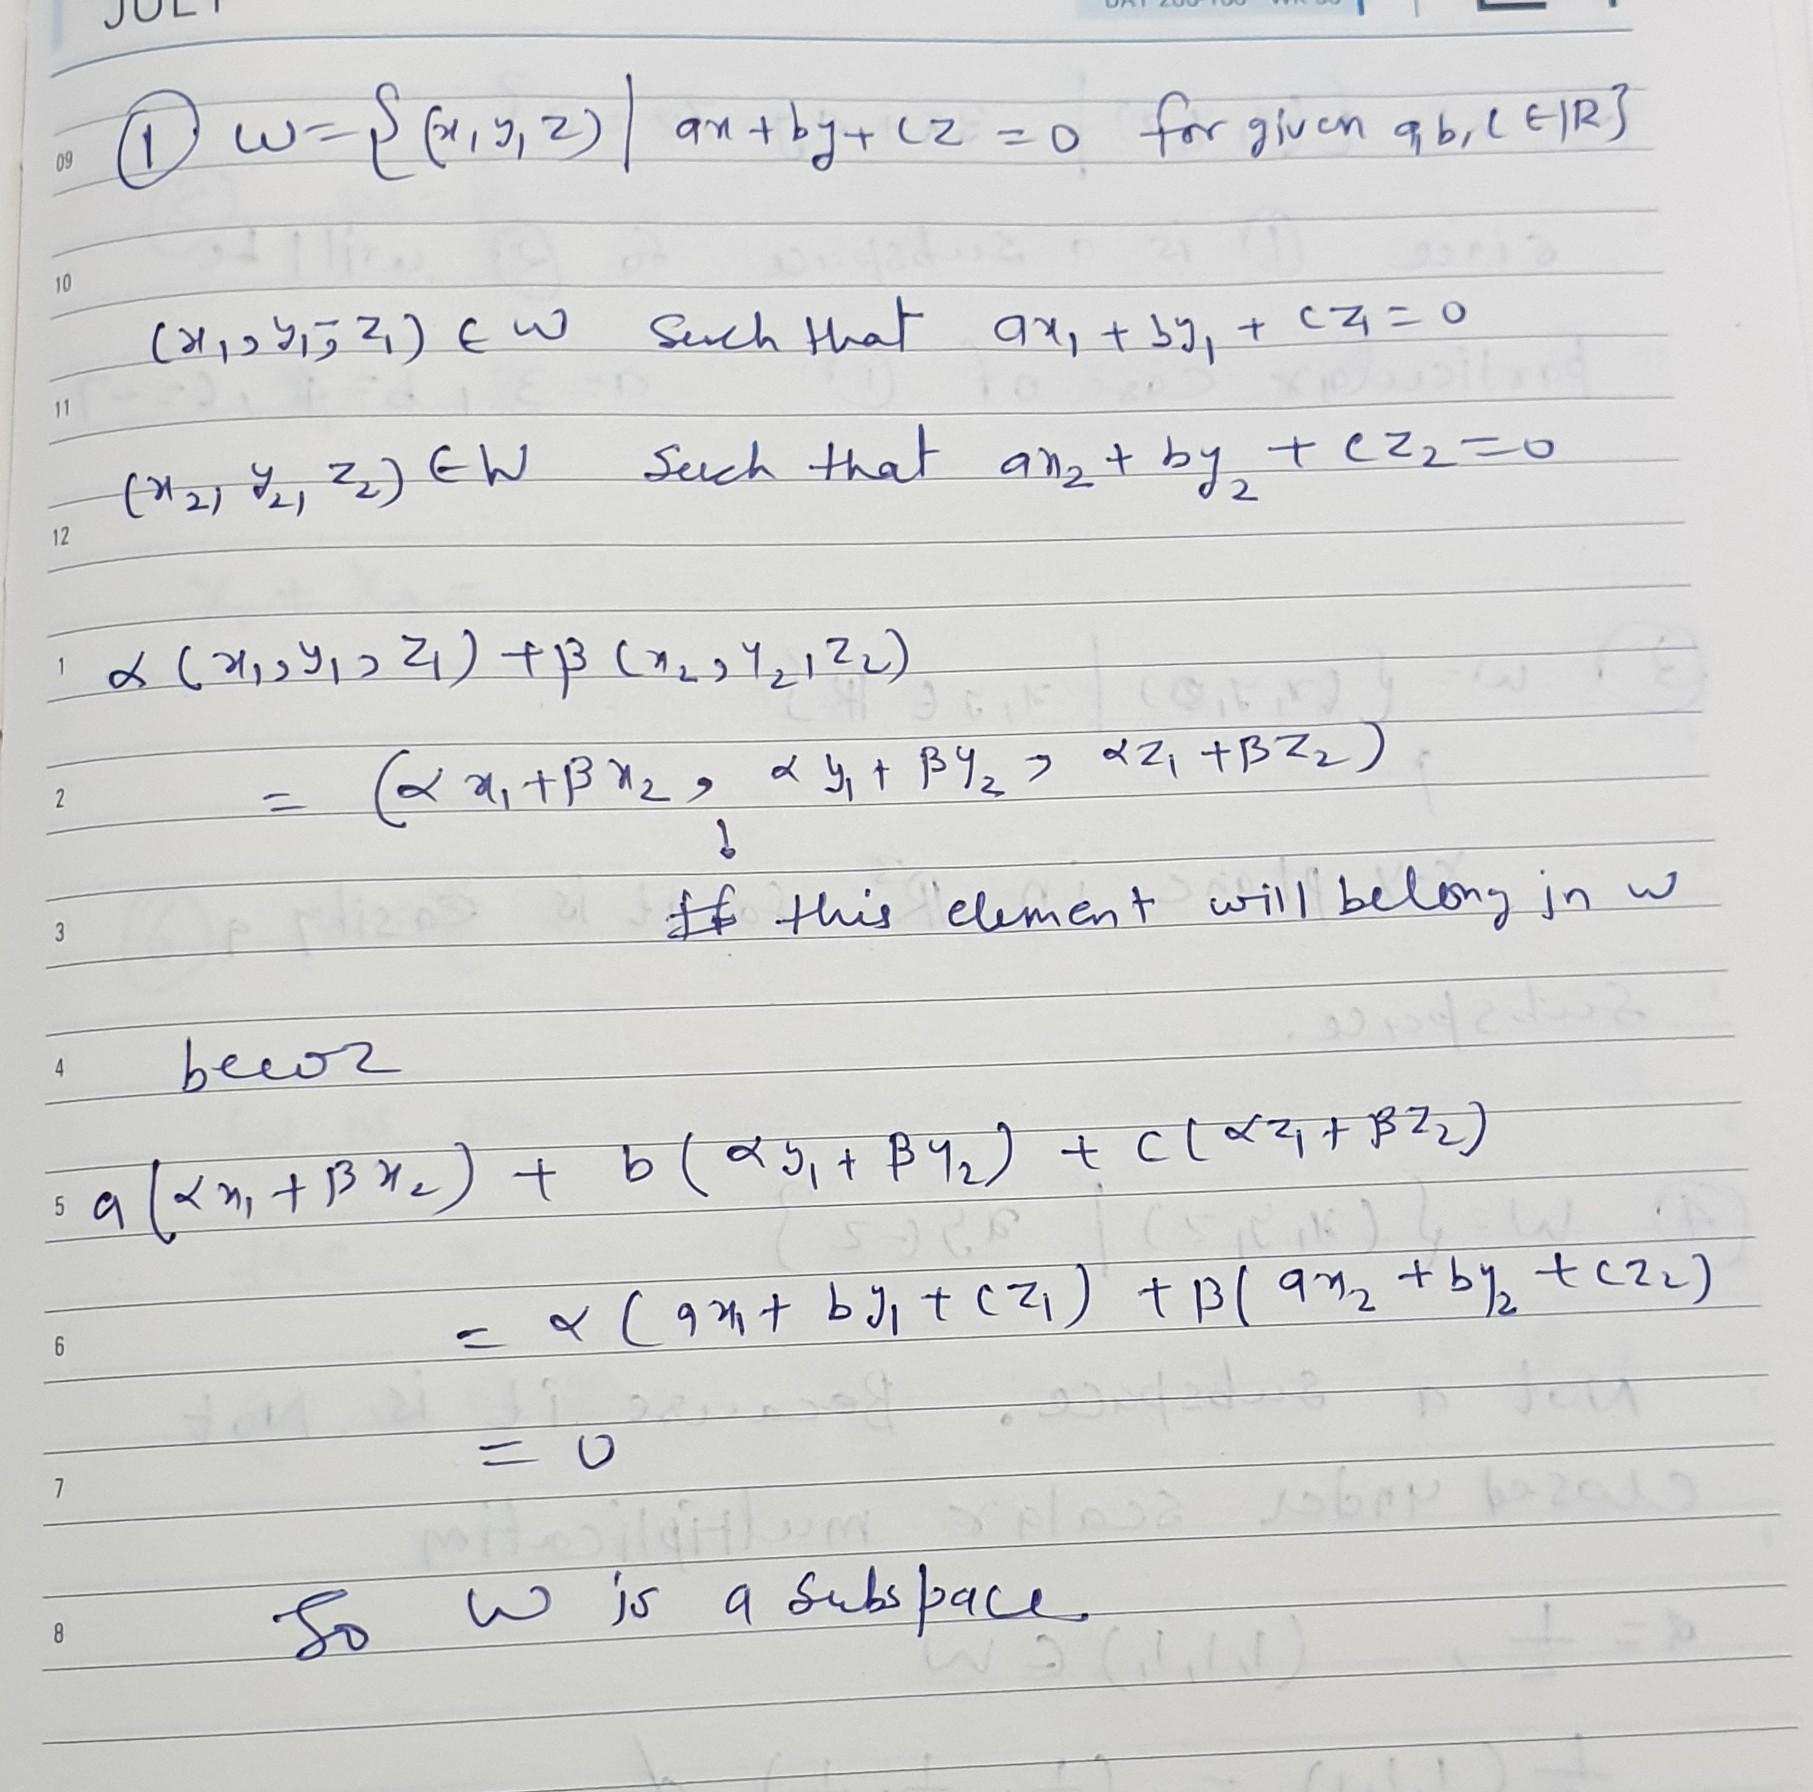 JULY
① W = {(x, y, z) | ax + by + cz = 0 for given a, b, c ∈ ℝ}
09
10
(x₁, y₁, z₁) ∈ W such that ax₁ + by₁ + cz₁ = 0
11
(x₂, y₂, z₂) ∈ W such that ax₂ + by₂ + cz₂ = 0
12
1 α (x₁, y₁, z₁) + β (x₂, y₂, z₂)
2 = (α x₁ + β x₂, α y₁ + β y₂, αz₁ + βz₂)
↓
3 this element will belong in W
4 becoz
5 a(αx₁ + βx₂) + b(αy₁ + βy₂) + c(αz₁ + βz₂)
6 = α (ax₁ + by₁ + cz₁) + β(ax₂ + by₂ + cz₂)
= 0
7
8 So W is a subspace